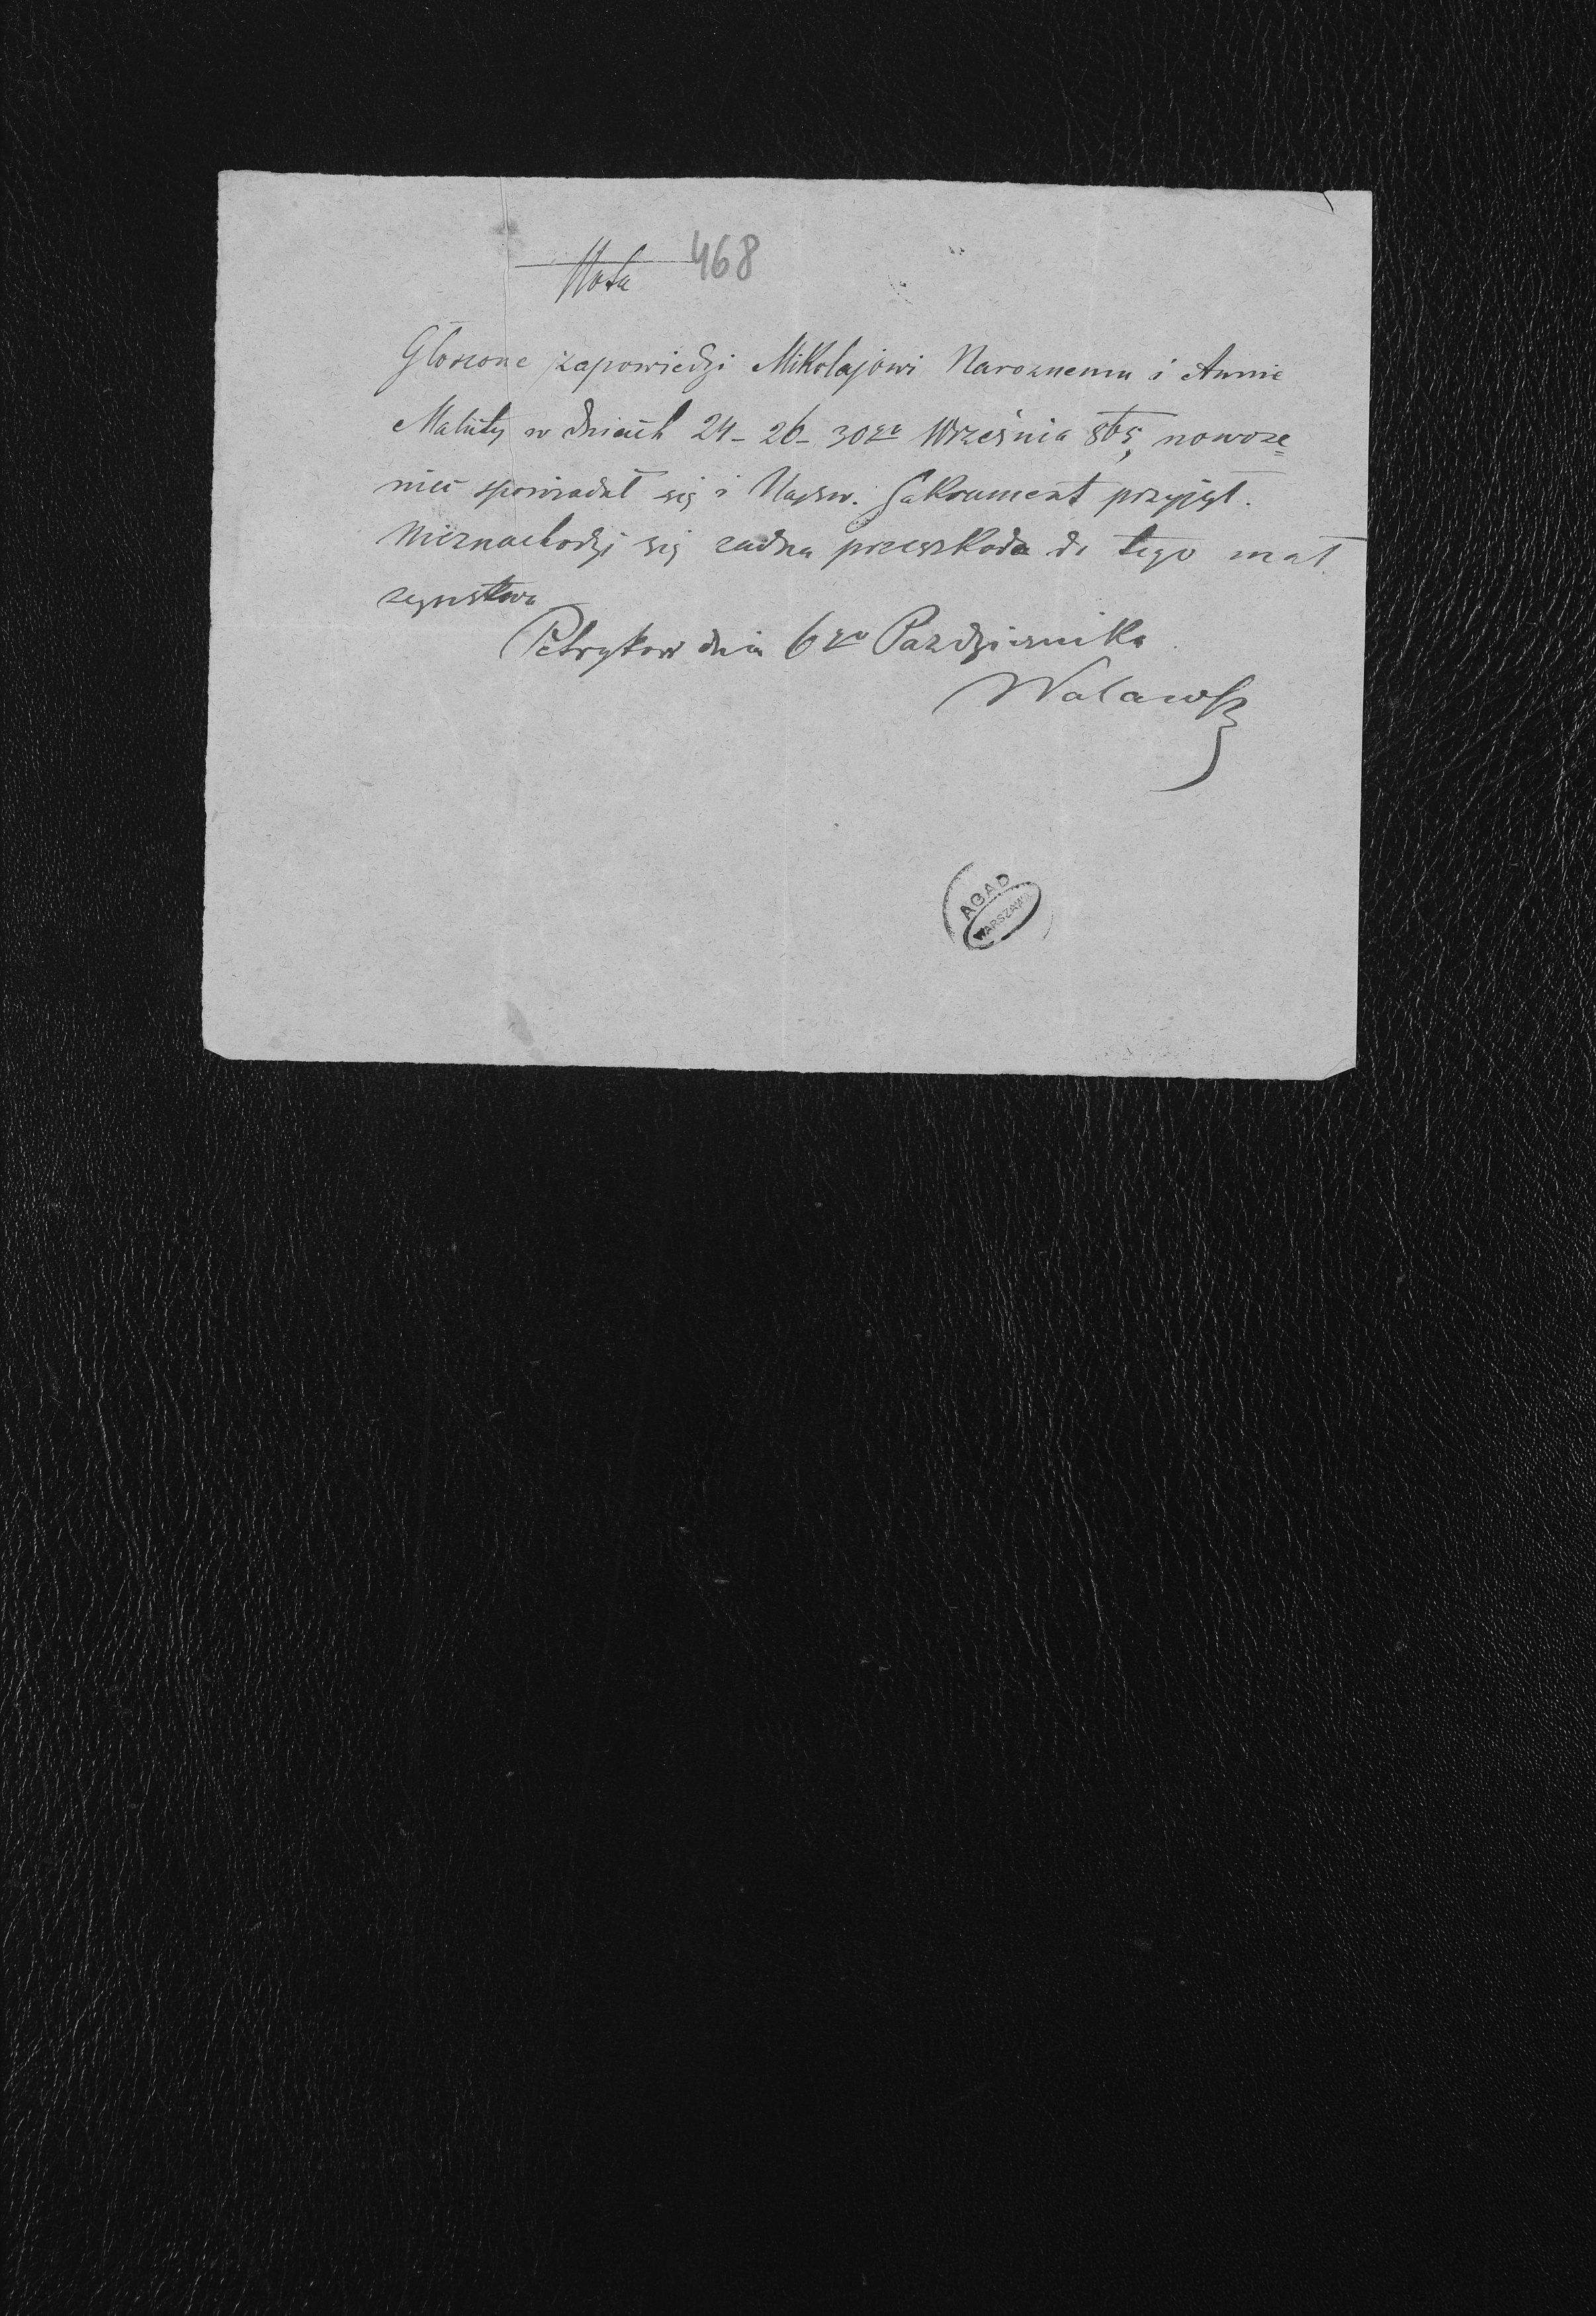 Nota 468
Głoszone zapowiedzi Mikołajowi Naroznemu i Annie
Maluty w dniach 24 - 26 - 30go Września 865, nowoże=
niec spowiadał się i Najsw. Sakrament przyjął.
Nieznachodzi się zadna przeszkoda do tego mał
zenstwa
Petrykow dnia 6go Pazdziernika
Walawsk
ABAD
WARSZAWA